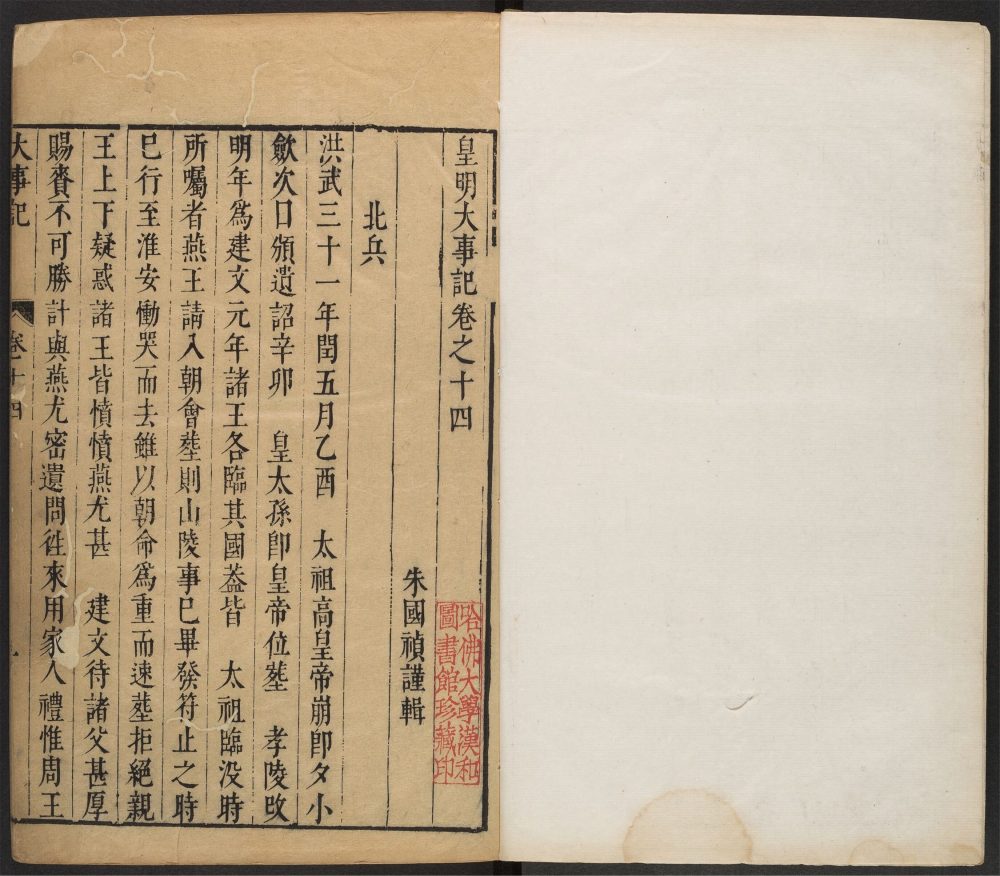 皇明大事記卷之十四
朱國禎謹輯
北兵
洪武三十一年閏五月乙酉 太祖高皇帝崩卽夕小
歛次日頒遺詔辛卯 皇太孫卽皇帝位塟 孝陵改
明年爲建文元年諸王各臨其國葢皆 太祖臨没時
所囑者燕王請入朝會塟則山陵事巳畢發符止之時
巳行至淮安慟哭而去雖以朝命爲重而速塟拒絕親
王上下疑惑諸王皆憤憤燕尤甚 建文待諸父甚厚
賜賚不可勝計與燕尤密遺問徃來用家人禮惟周王
大事記 卷十四
哈佛大學漢和
圖書館珍藏印